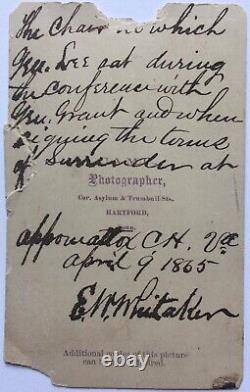 The Chair in which
Gen. Lee sat during
the conference with
Gen. Grant and when
signing the terms
of surrender at
Photographer,
Cor. Asylum & Trumbull Sts.
HARTFORD,
appomattox C.H. Va
April 9 1865
E.W. Whitaker
Additional of this picture
can